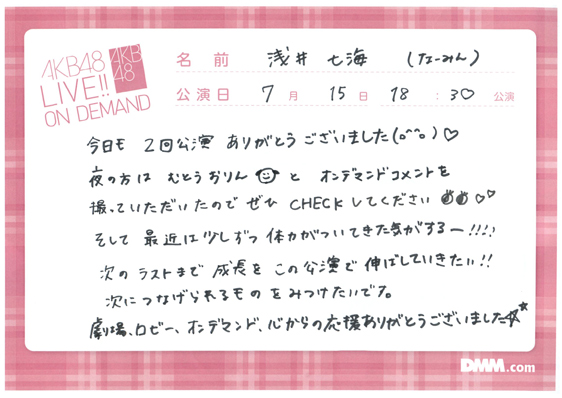 AKB48
LIVE!!
ON DEMAND
AKB
48
名前 浅井 七海 (なーみん)
公演日 7月 15日 18:30 公演
今日も 2回公演 ありがとう ございました(o^^o)♡
夜の方は むとうおりん と オンデマンドコメントを
撮っていただいたので ぜひ CHECK してください ♡♡
そして 最近は少しずつ 体力がついてきた気がするー!!!!
次の ラストまで 成長を この公演で 伸ばしていきたい!!
次につなげられるもの をみつけたいです。
劇場、ロビー、オンデマンド、心からの応援ありがとうございました☆
DMM.com